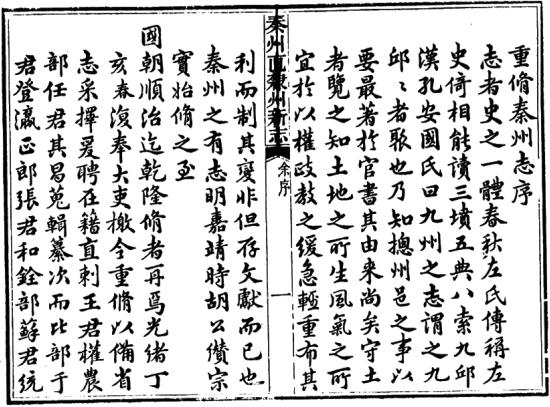 重脩秦州志序
志者史之一體春秋左氏傳稱左
史倚相能讀三墳五典八索九邱
漢孔安國氏曰九州之志謂之九
邱邱者聚也乃知摠州邑之事以
要最著於官書其由來尚矣守土
者覽之知土地之所生風氣之所
宜於以權政教之緩急輕重布其
秦州直隸州新志
余序
一
利而制其變非但存文獻而已也
秦州之有志明嘉靖時胡公纘宗
實始脩之至
國朝順治迄乾隆脩者再焉光緒丁
亥春復奉大吏檄令重脩以備省
志采擇爰聘在籍直刺王君權農
部任君其昌蒐輯纂次而比部于
君登瀛正郎張君和銓部蘇君統